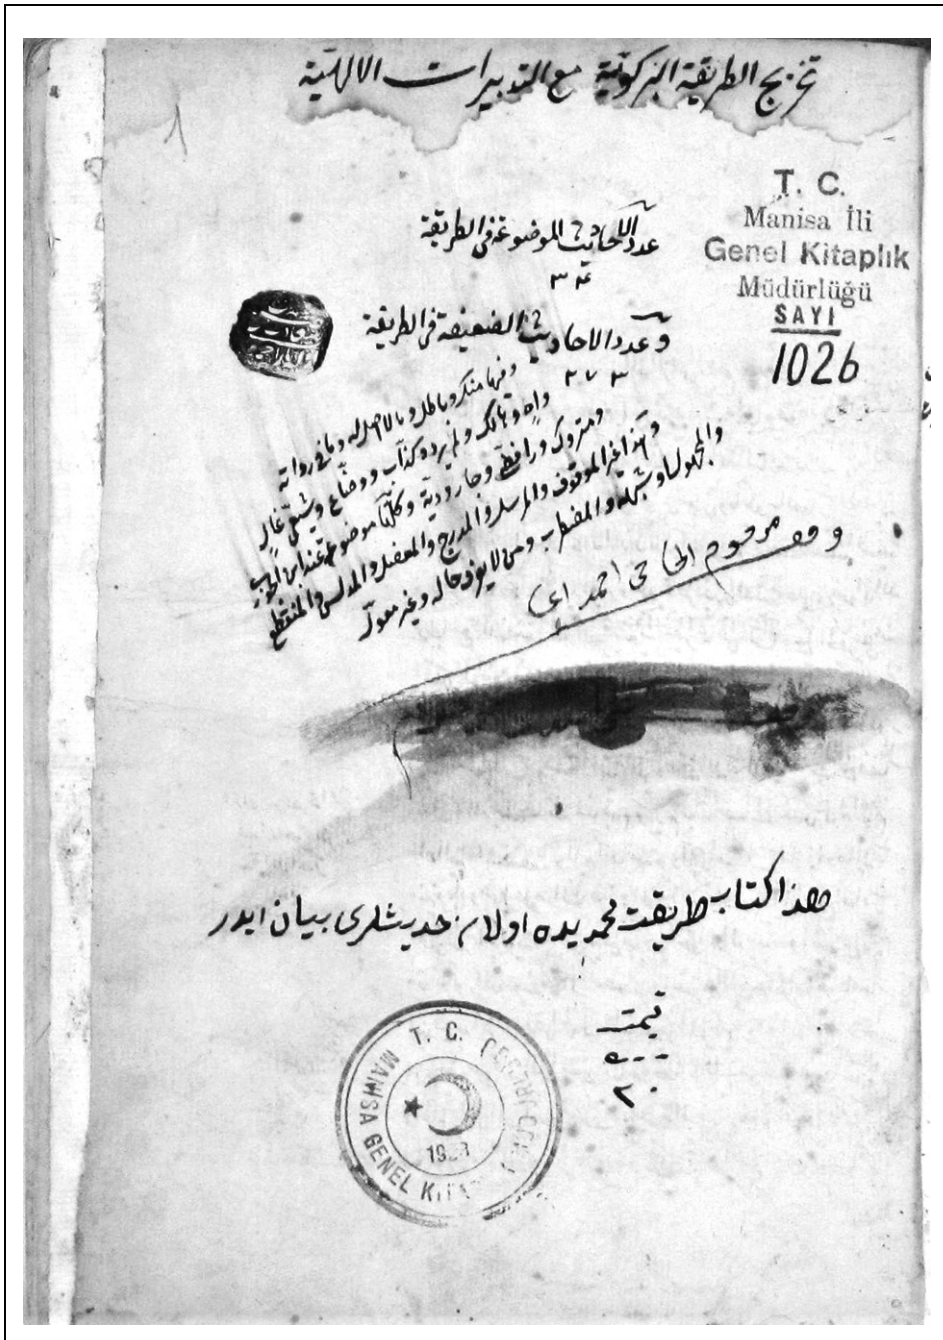 تخريج الطريقة البركوية مع التدبيرات الالهية
T. C.
Manisa İli
Genel Kitaplık
Müdürlüğü
SAYI
1026
عدد الاحاديث الموضوعة في الطريقة
٣
وعدد الاحاديث الضعيفة في الطريقة
٢٧٣
وفيها منكر وباطل وبالا اصل له وما في رواته
واه وهالك ولم يرد وكذاب ووضاع وشيعي غال
ومتروك ورافضي وجارودية وكلها موضوع عند ابن الجوزي
وهذا غير الموقوف والمرسل والمدرج والمعضل والمدلس والمنقطع
والمجهول وشبهه والمضطرب ومن لا يعرف حاله وغير معول
مرحوم الحاجي احمد
هذا كتاب طريقت محمديده اولان حديثلرى بيان ايدر
قيمت
٢٠
T. C.
MANİSA GENEL